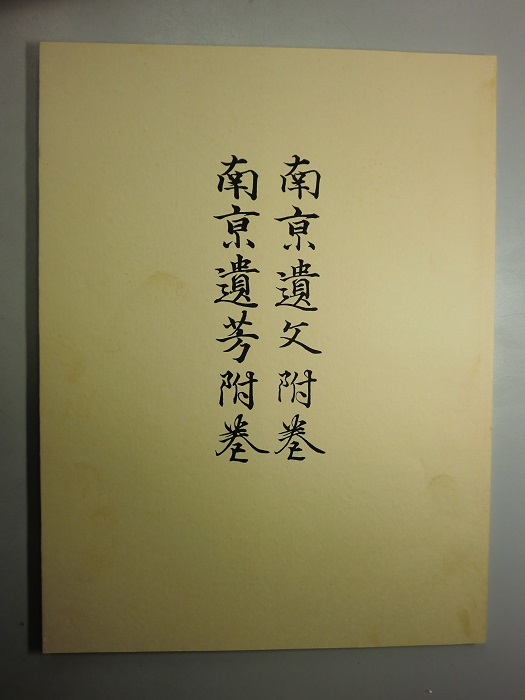 南京遺文附巻
南京遺芳附巻